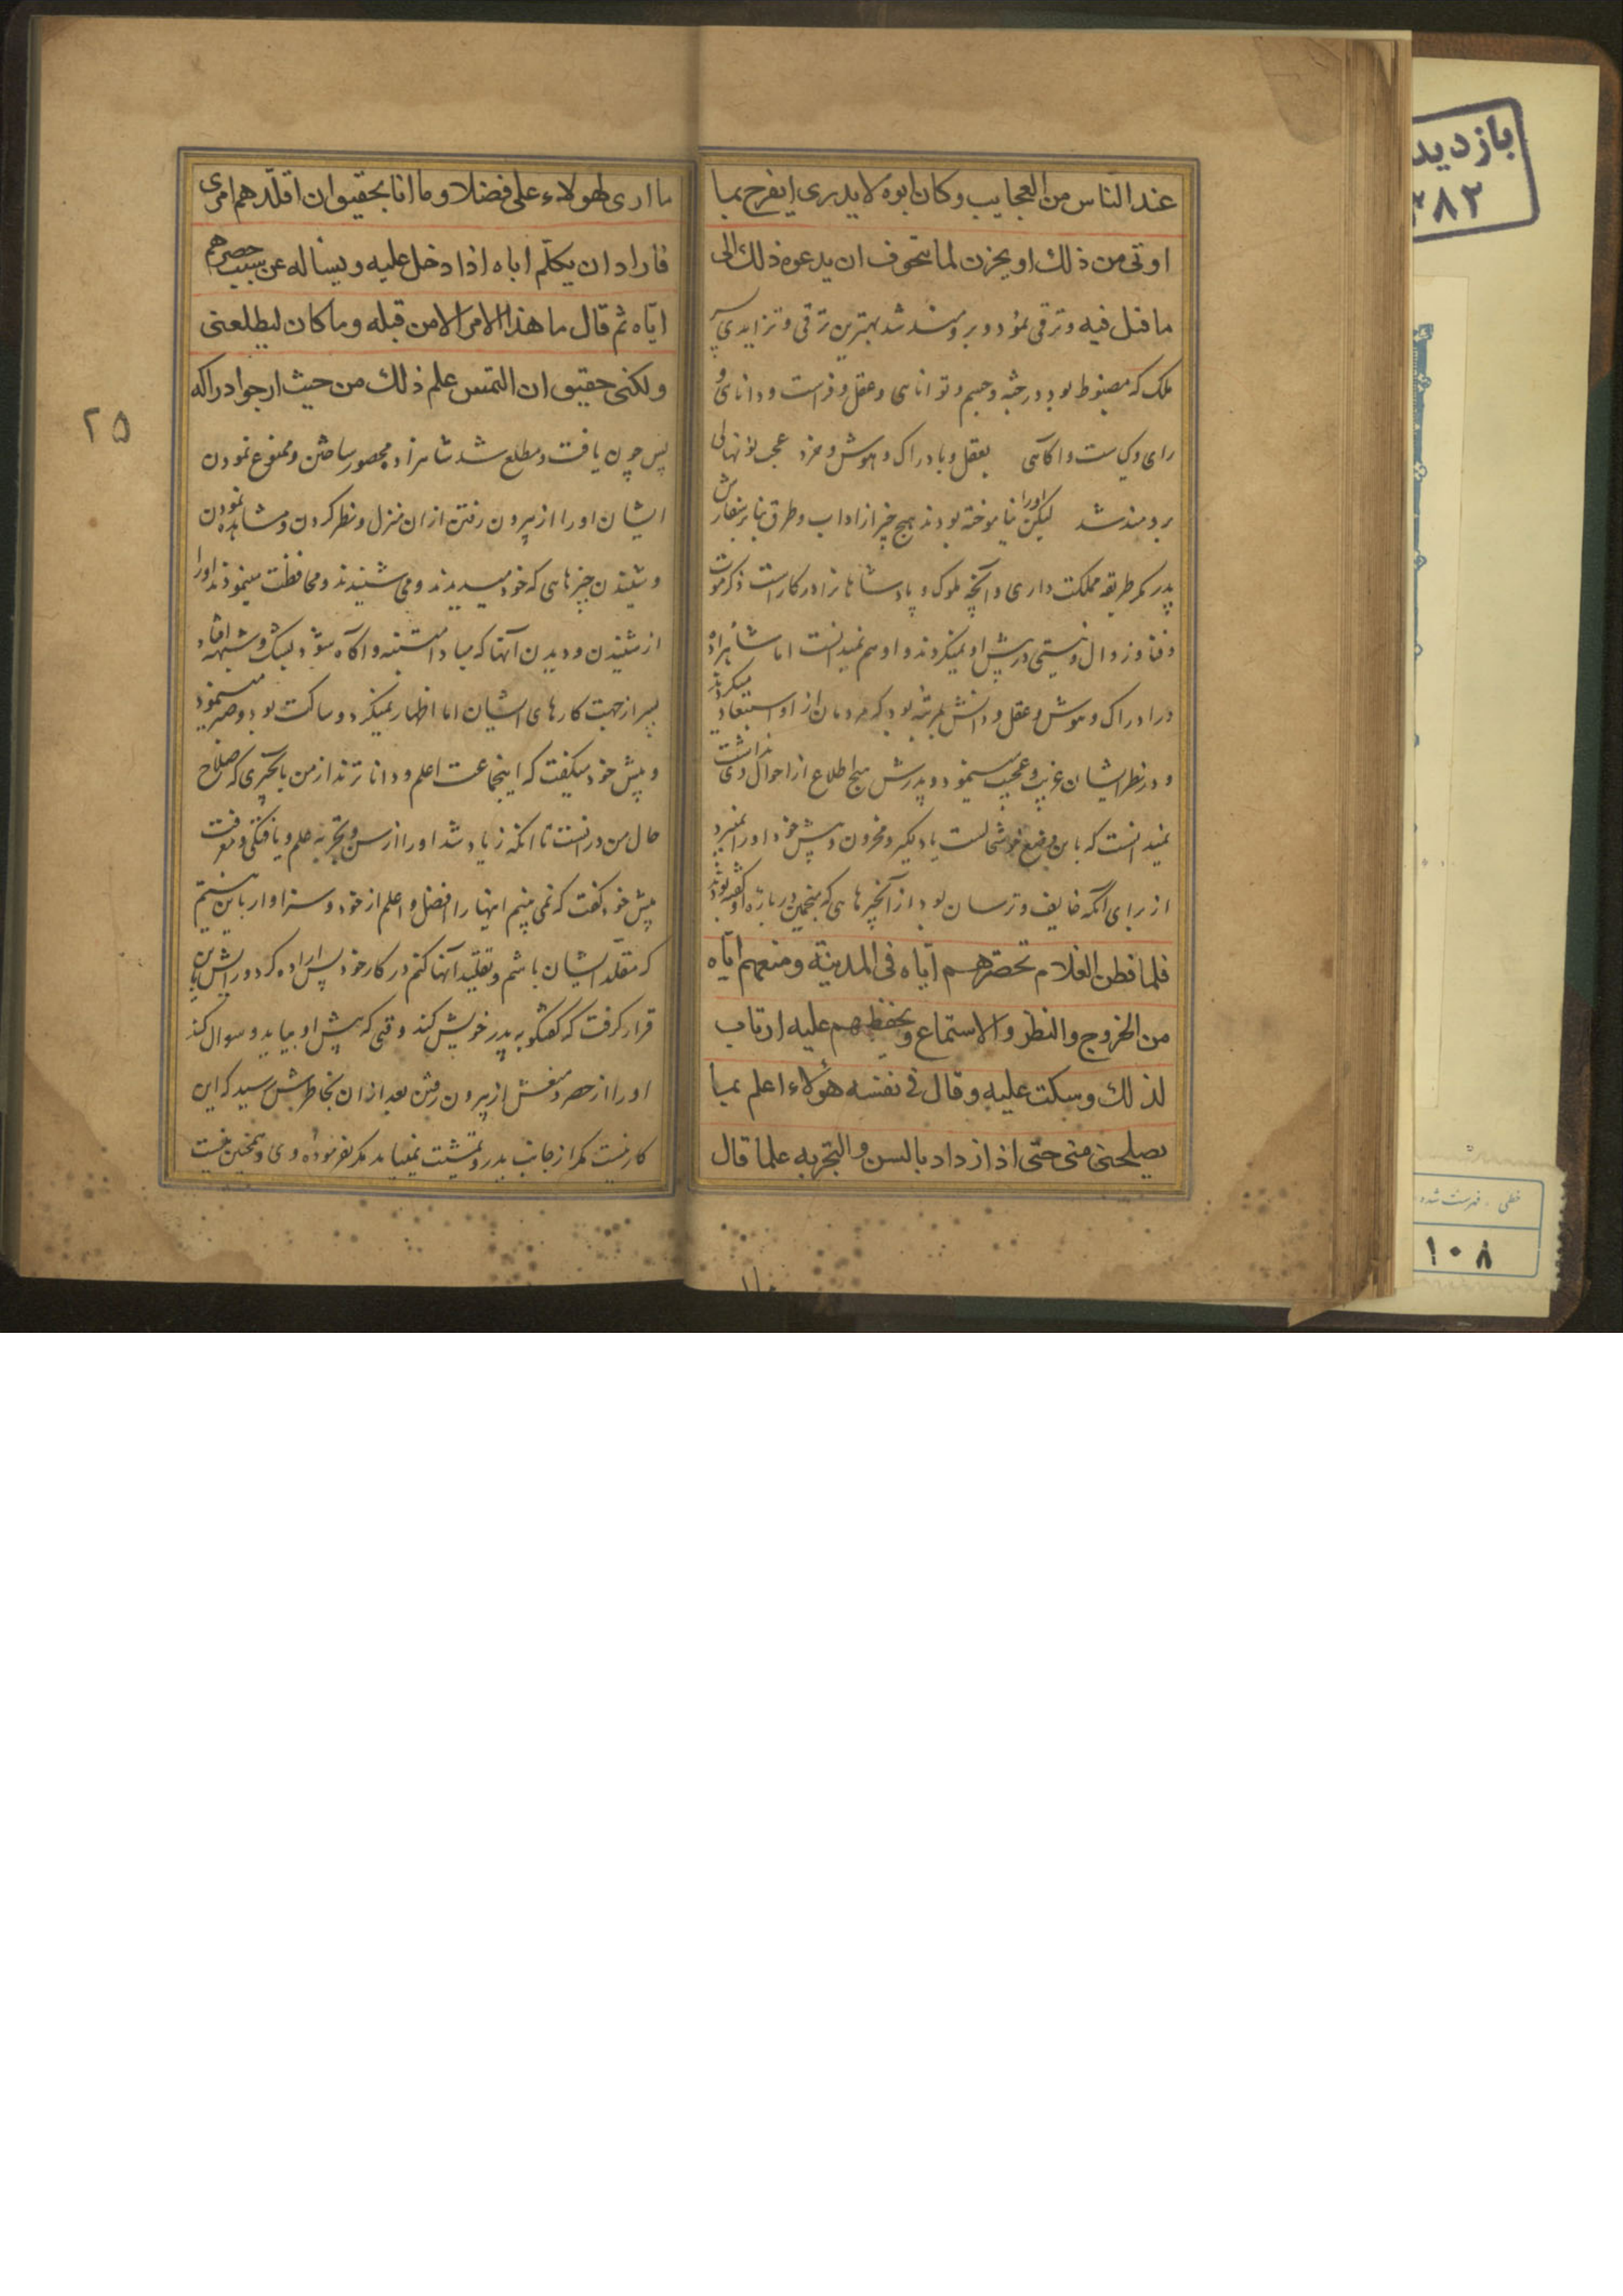 عند الناس من العجايب وكان ابوه لا يدرى ايفرح بما
اوتى من ذلك او يحزن لما يتخوف ان يدعوه ذلك الى
ما قيل فيه وترقى نمود و برومند شد بهترين ترقى و تزايدى پسر
ملك كه مضبوط بود در جثه و جسم و توانائى و عقل و فراست و دانائى و
راى وكياست و اكاهى بعقل و بادراك و هوش و خرد عجب نونهالى
برومند شد ليكن اورا نياموخته بودند هيچ چيز از اداب و طرق بنا بر سفارش
پدر مكر طريقه مملكت دارى و آنچه ملوك و پادشاهانرا در كار است ذكر موت
و فنا و زوال و نيستى در پيش او نميكردند و او هم نميدانست اما شاهزاده
در ادراك و هوش و عقل و دانش بمرتبه بود كه مردمان از او استبعاد ميكردند
و در نظر ايشان غريب و عجيب مينمود و پدرش هيچ اطلاع از احوال وى نداشت
نميدانست كه باين وضع
از براى آنكه خايف و ترسان بود از آنچيزهائى كه منجمين در باره او گفته بودند
فلما فطن الغلام تحصرهم اياه فى المدينة ومنعهم اياه
من الخروج والنظر والاستماع وتحفظهم عليه ارتاب
لذلك وسكت عليه وقال فى نفسه هؤلاء اعلم بما
يصلحنى منى حتى اذا ازداد بالسن والتجربه علما قال
ما ارى لهولاء على فضلا وما انا بحقيق ان اقلدهم امرى
فاراد ان يكلم اباه اذا دخل عليه ويساله عن سبب حصرهم
اياه ثم قال ما هذا الامر الا من قبله وما كان ليطلعنى
ولكنى حقيق ان التمس علم ذلك من حيث ارجو ادراكه
پس چون يافت و مطلع شد شاهزاده محصور ساختن و ممنوع نمودن
ايشان اورا از بيرون رفتن از ان منزل و نظر كردن و مشاهده نمودن
و شنيدن چيزهائى كه خود ميديدند و مى شنيدند و محافظت مينمودند اورا
از شنيدن و ديدن آنها كه مبادا متنبه و آكاه شود بشك و شبهه افتاد
پسر از جهت كارهاى ايشان اما اظهار نميكرد و ساكت بود و صبر مينمود
و پيش خود ميكفت كه اينجماعت اعلم و دانا ترند از من بانچيزى كه صلاح
حال من در انست تا انكه زياد شد اورا از سن و تجربه علم و يافتكى و معرفت
پيش خود كفت كه نمى بينم اينها را افضل و اعلم از خود و سزاوار باين نيستم
كه مقلد ايشان باشم و تقليد آنها كنم در كار خود پس اراده كرد و رايش باين
قرار كرفت كه كفتكو به پدر خويش كند وقتى كه پيش او بيايد و سوال كند
اورا از حصر و منعش از بيرون رفتن بعد از ان بخاطرش رسيد كه اين
كار نيست مكر از جانب پدر و نميايد مكر بفرموده وى و همچنين نيست
۲۵
بازديد
۳۸۲
خطى - فهرست شده
۱۰۸